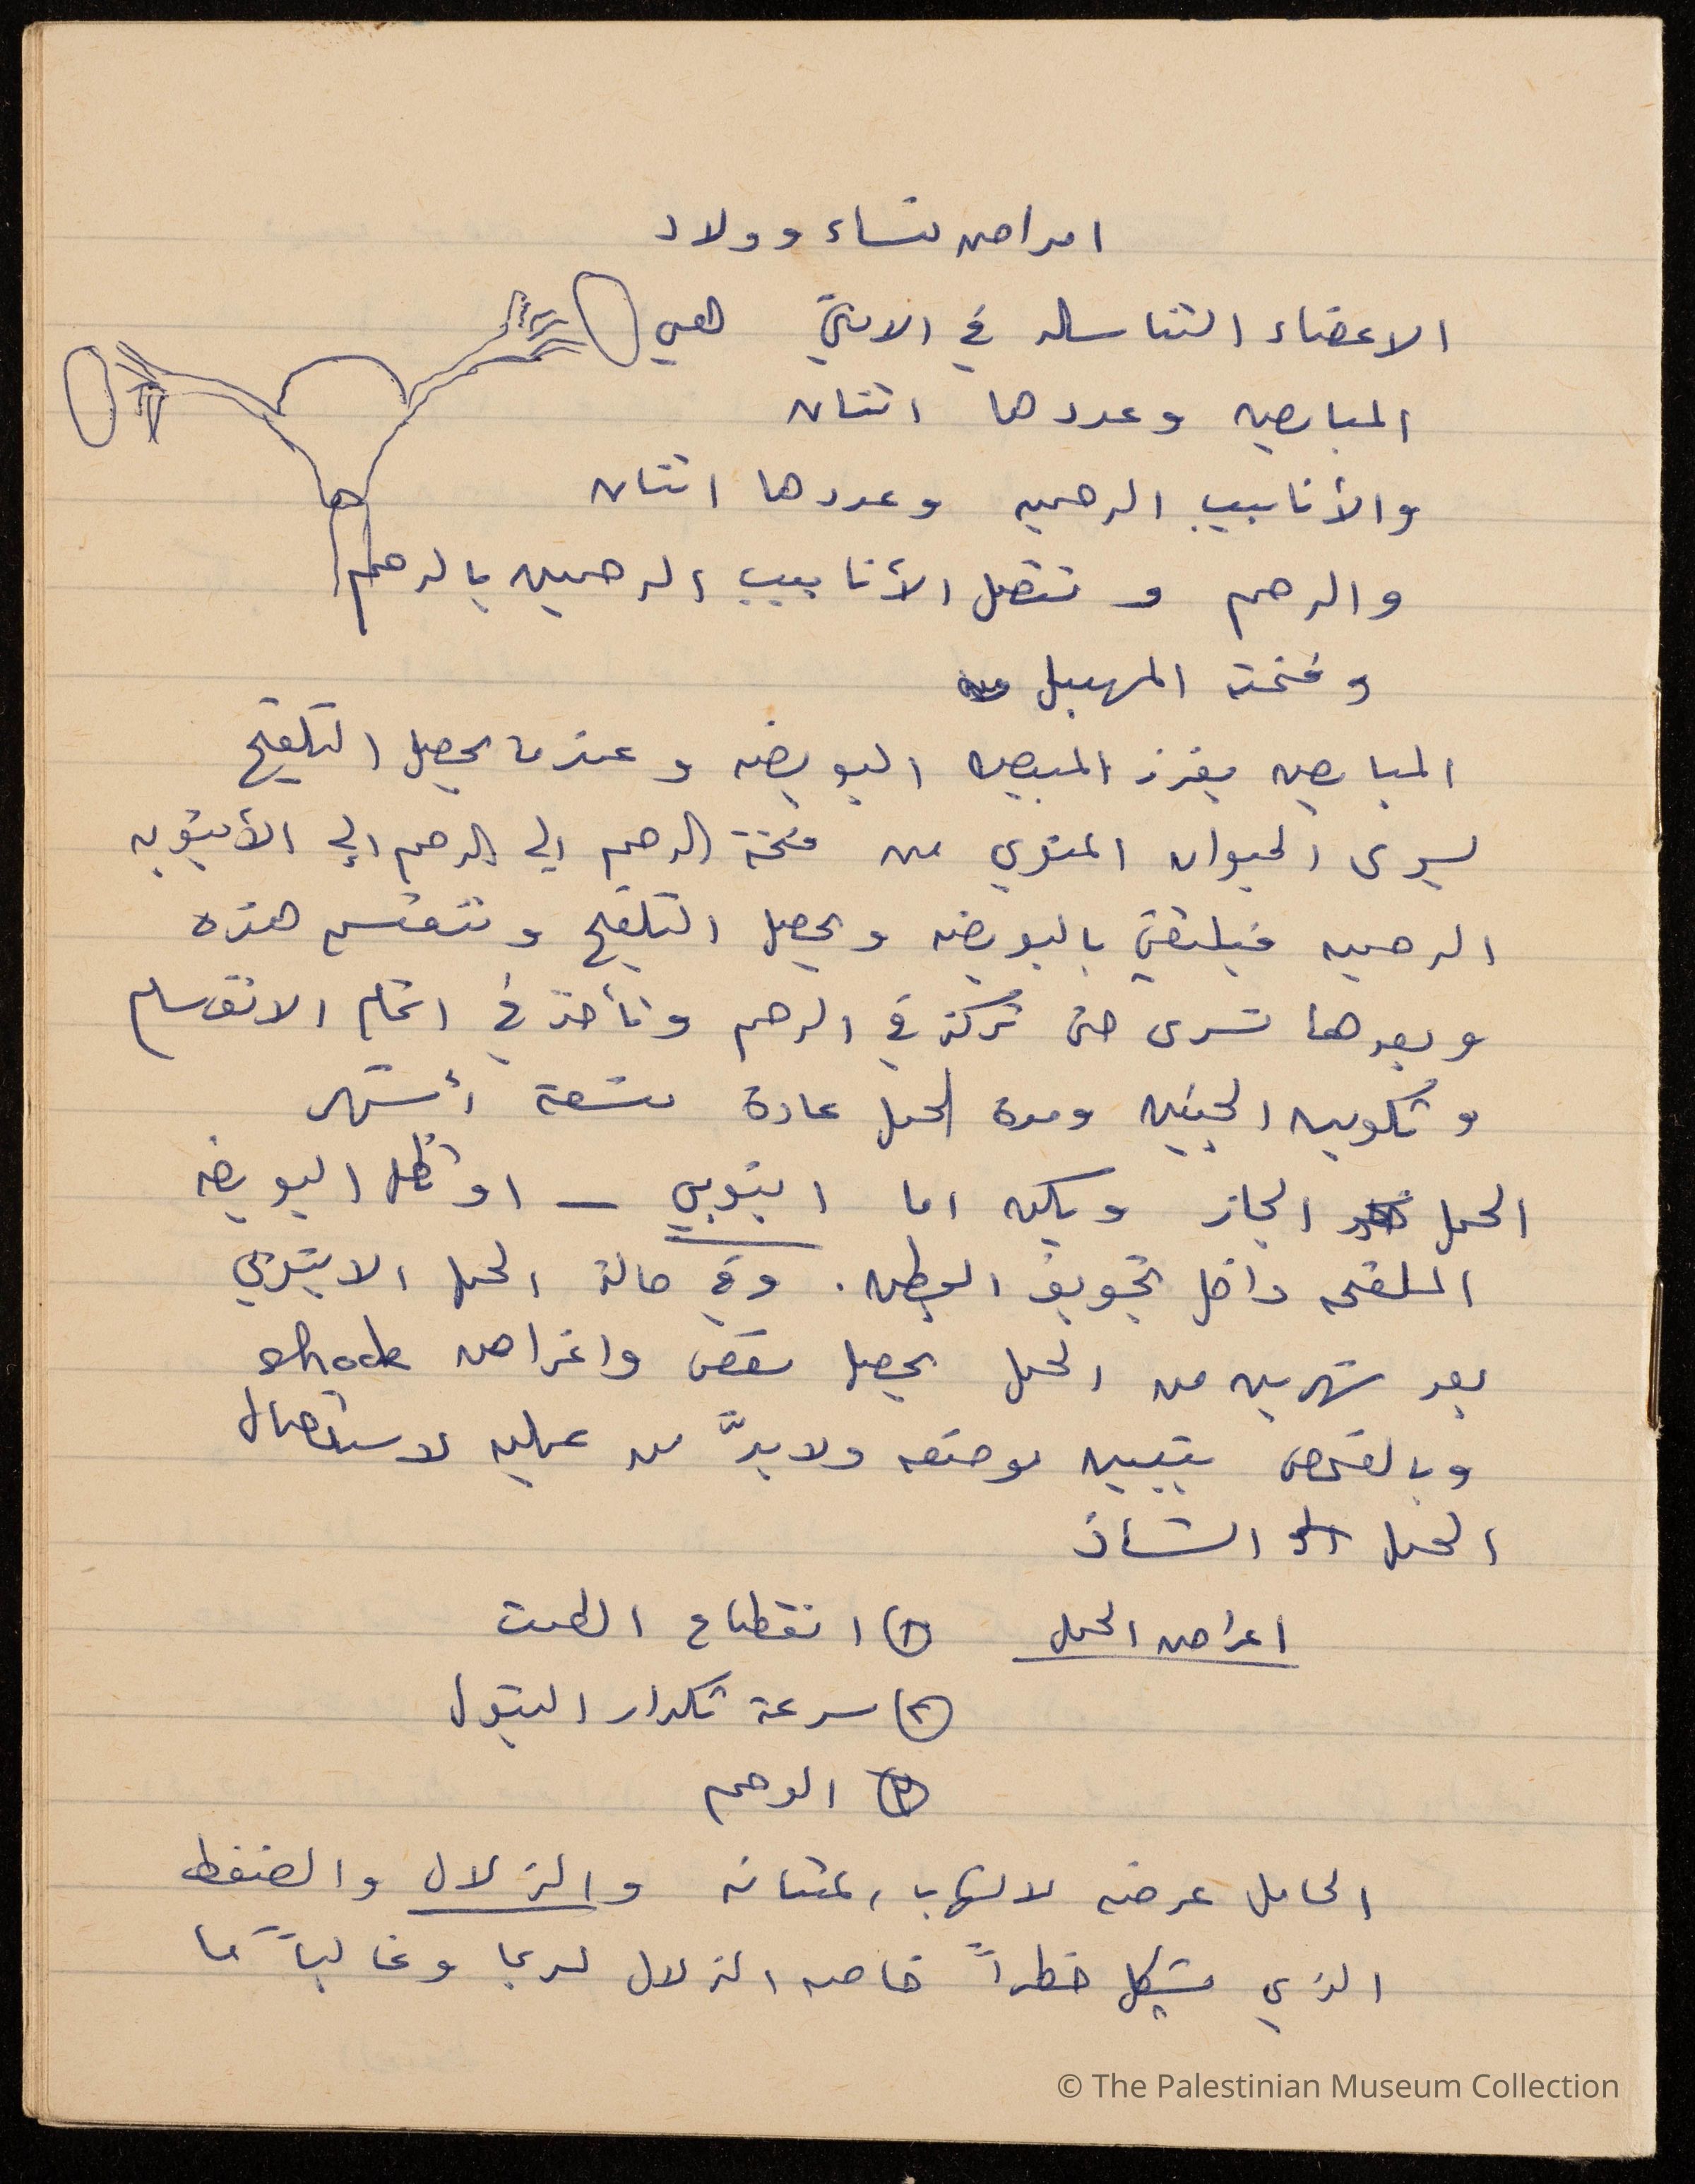 امراض نساء وولاد
الاعضاء التناسله في الانثى هي
المبايض وعددها اثنان
والأنابيب الرحميه وعددها اثنان
والرحم و تتصل الأنابيب الرحميه بالرحم
وفتحة المهبل
المبايض يفرز المبيض البويضه وعندما يحصل التلقيح
يسرى الحيوان المنوي من فتحة الرحم الى الرحم الى الأنبوبه
الرحميه فيلتقي بالبويضه ويحصل التلقيح وتنقسم هذه
وبعدها تسرى حتى تركز في الرحم وتأخذ في اتمام الانقسام
وتكوين الجنين ومدة الحمل عادة تسعة أشهر
الحمل ويكون اما انبوبي – او تظل البويضه
الملقحه داخل تجويف البطن. وفي حالة الحمل الانبوبي
بعد شهرين من الحمل يحصل مغص واعراض shock
وبالفحص يتبين موضعه ولابدَّ من عمليه لاستئصال
الحمل الشاذ
اعراض الحمل ① انقطاع الطمث
② سرعة تكرار التبول
③ الوحم
الحامل عرضه لالتهاب المثانه والزلال والضغط
الذي يشكل خطراً خاصه الزلال وغالباً ما
© The Palestinian Museum Collection